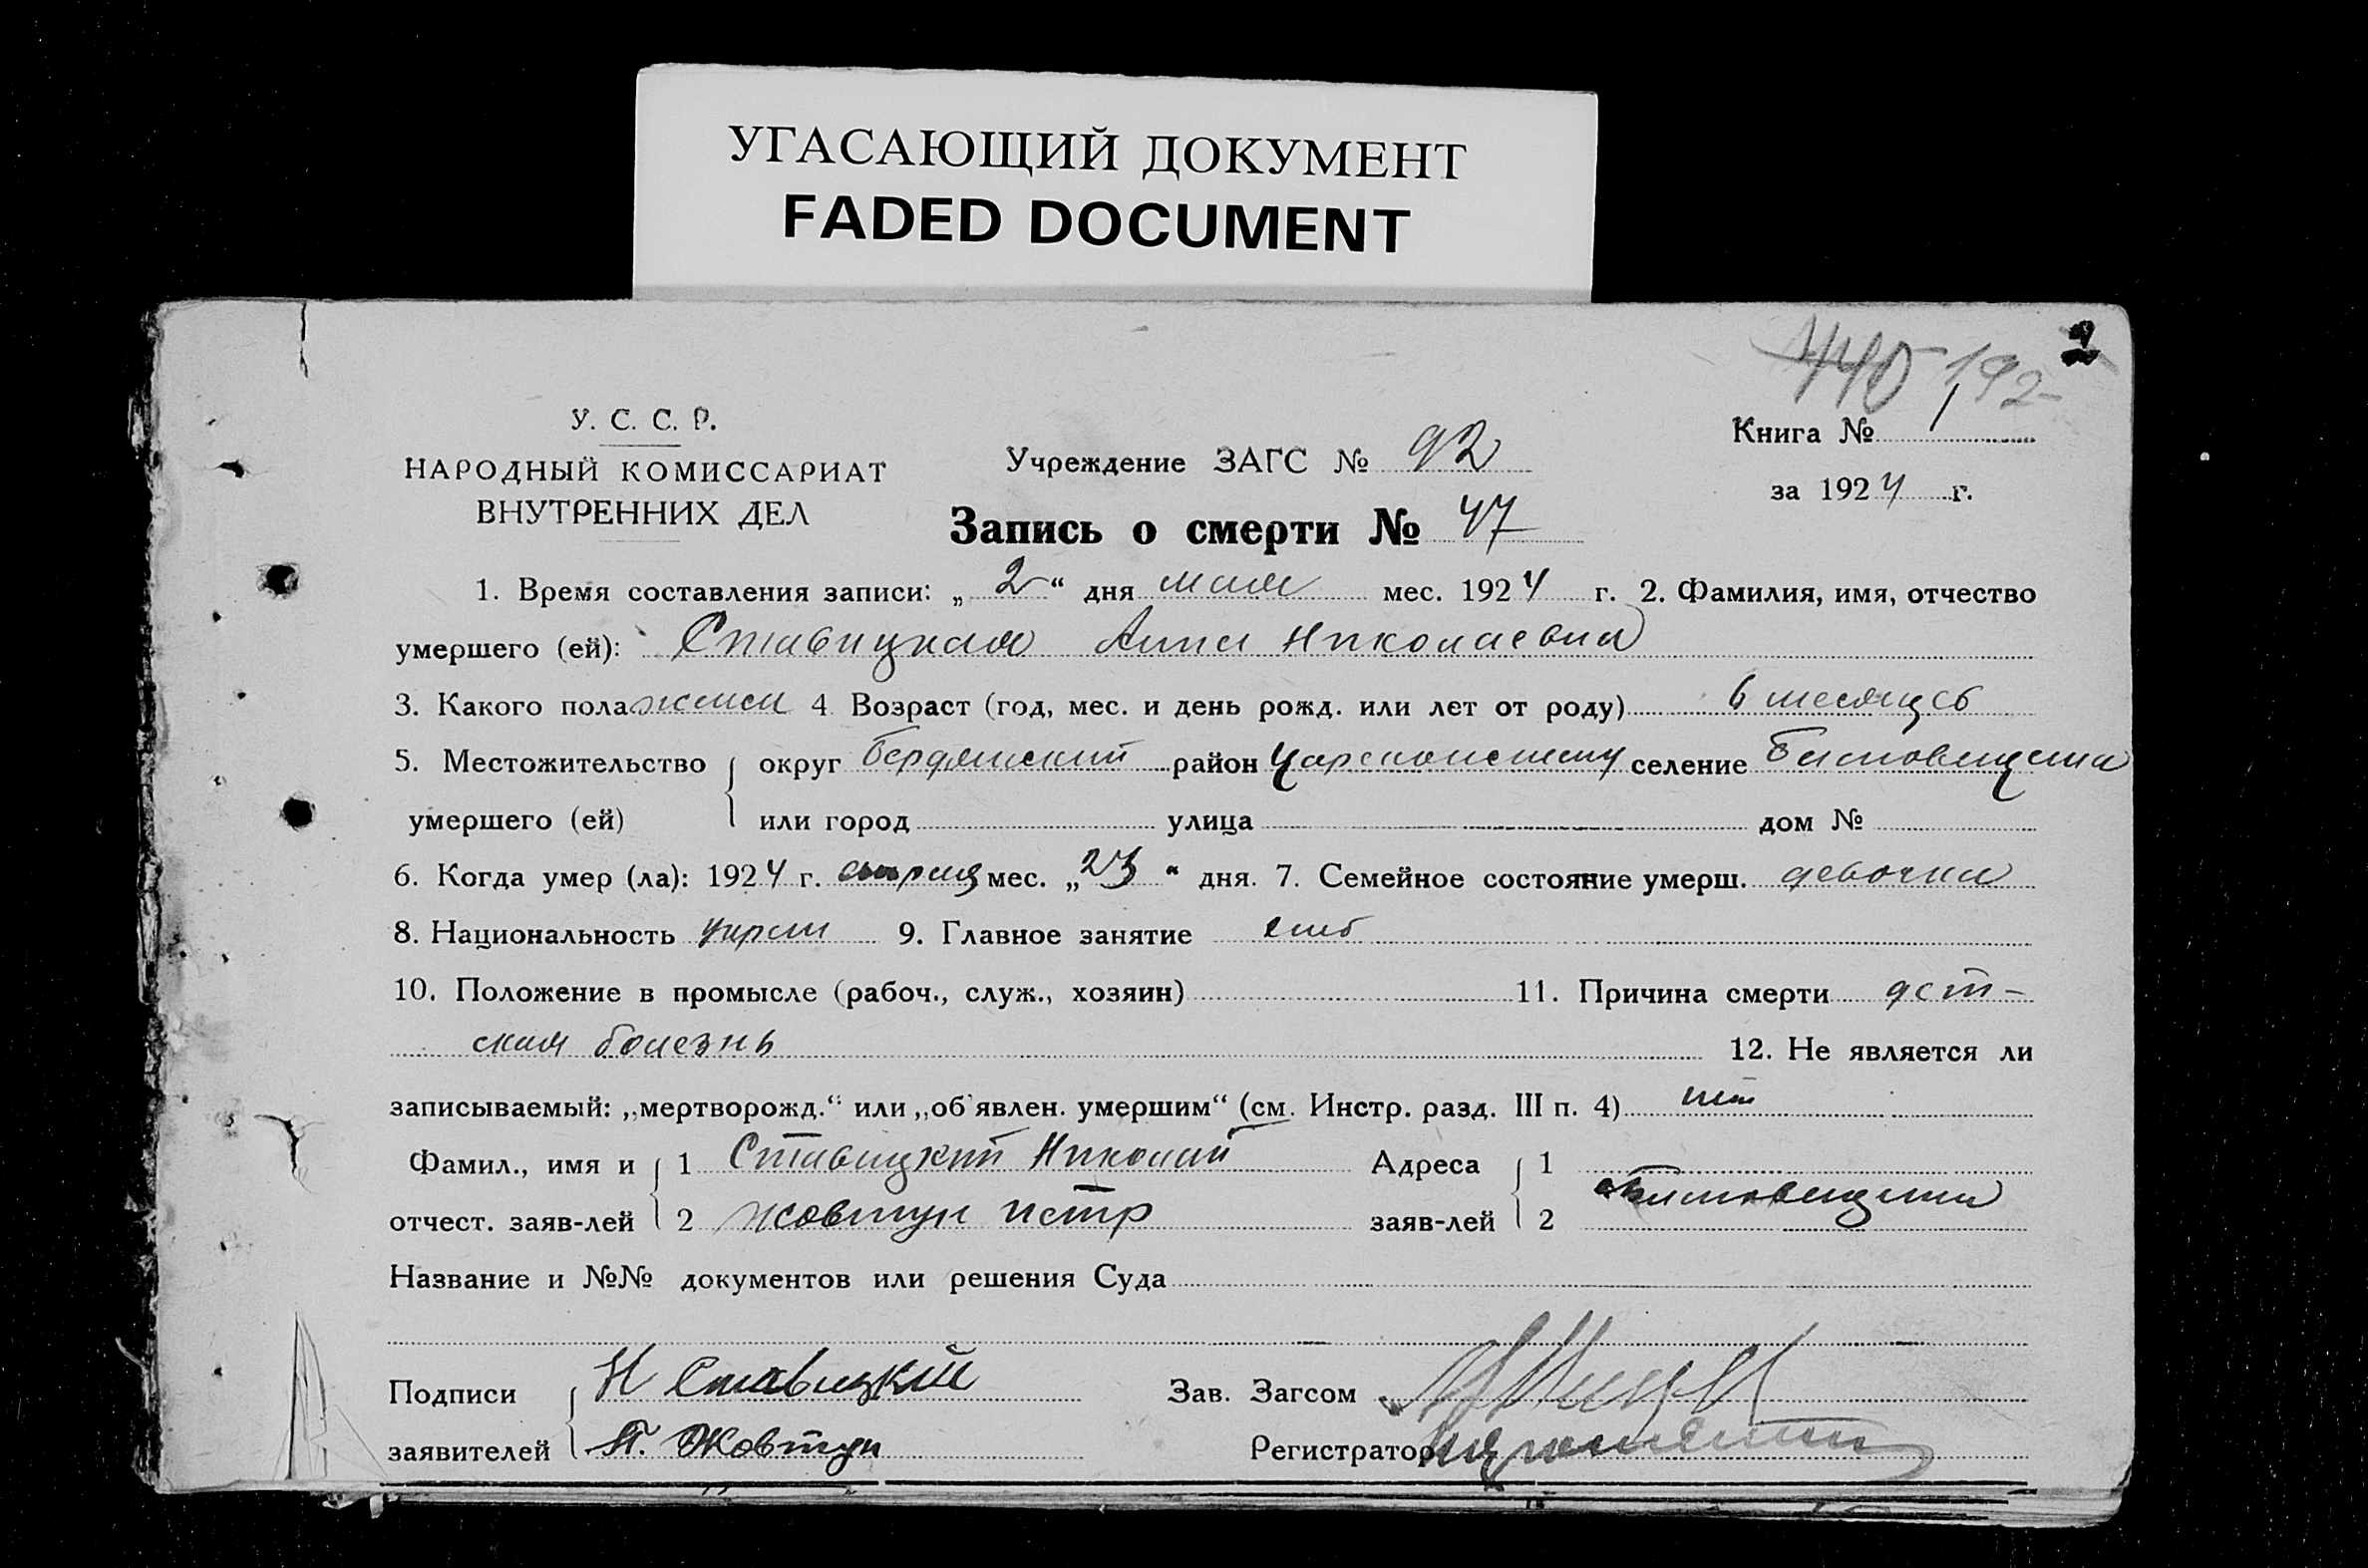 УГАСАЮЩИЙ ДОКУМЕНТ
FADED DOCUMENT
2
440 192
У. С. С. Р.
НАРОДНЫЙ КОМИССАРИАТ
ВНУТРЕННИХ ДЕЛ
Учреждение ЗАГС № 92
Книга № 1
за 1924 г.
Запись о смерти № 47
1. Время составления записи: „2“ дня мая мес. 1924 г. 2. Фамилия, имя, отчество
умершего (ей): Ставицкая Анна Николаевна
3. Какого пола женск 4 Возраст (год, мес. и день рожд. или лет от роду) 6 месяцев
5. Местожительство округ Бердянский район Цареконстант селение
умершего (ей) или город улица дом №
6. Когда умер (ла): 1924 г. апреля мес. „23“ дня. 7. Семейное состояние умерш. девочка
8. Национальность укран 9. Главное занятие
10. Положение в промысле (рабоч., служ., хозяин) 11. Причина смерти дет-
ская болезнь 12. Не является ли
записываемый: „мертворожд.“ или „об'явлен. умершим“ (см. Инстр. разд. III п. 4) нет
Фамил., имя и 1 Ставицкий Николай Адреса 1
отчест. заяв-лей 2 Жовтун Петр заяв-лей 2
Название и №№ документов или решения Суда
Подписи Н Ставицкий Зав. Загсом
заявителей П. Жовтун Регистратор